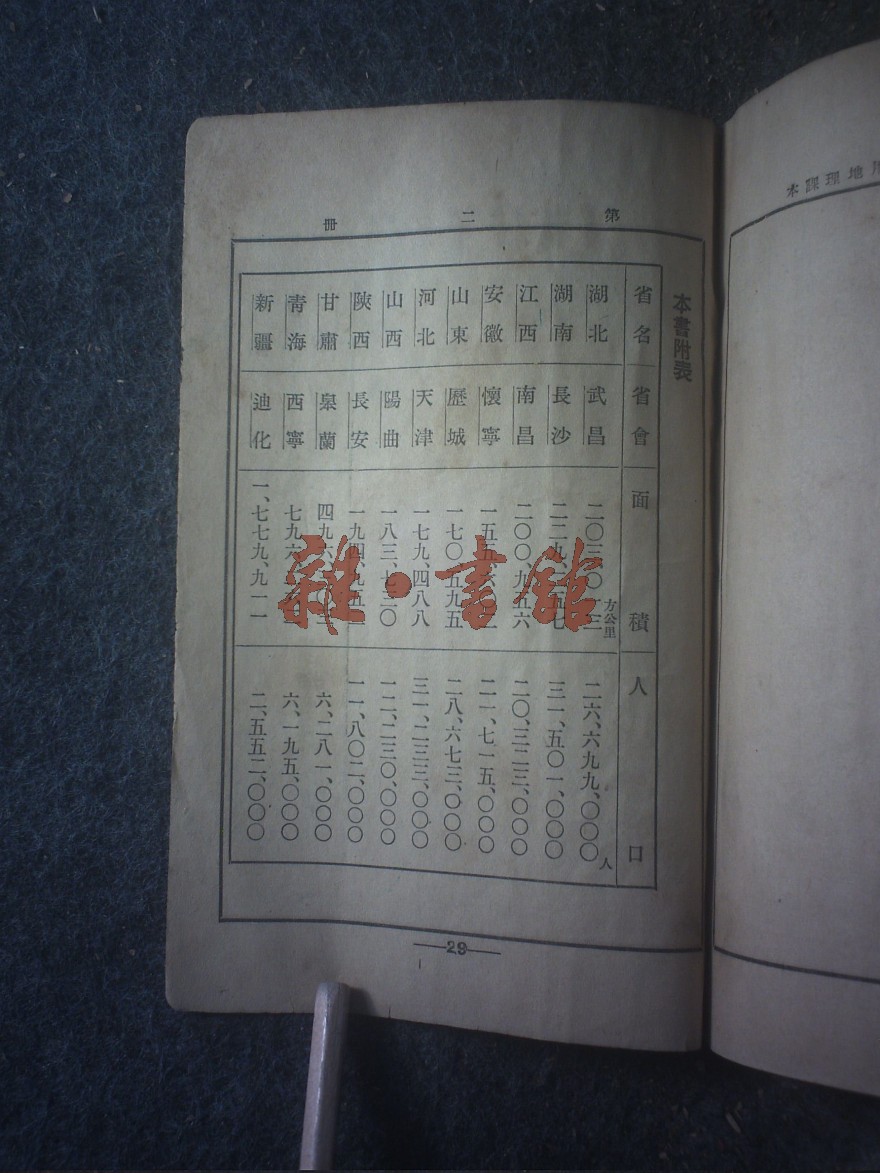 第二冊
本書附表
省名 省會 面積 人口
湖北 武昌 方公里 二六、六九九、〇〇〇人
湖南 長沙 三一、五〇一、〇〇〇
江西 南昌 二〇〇、九五六 二〇、三二三、〇〇〇
安徽 懷寧 二一、七一五、〇〇〇
山東 歷城 一七〇、五九五 二八、六七三、〇〇〇
河北 天津 一七九、四八八 三一、二三三、〇〇〇
山西 陽曲 一八三、七三〇 一二、二三〇、〇〇〇
陝西 長安 一一、八〇二、〇〇〇
甘肅 皋蘭 六、二八一、〇〇〇
青海 西寧 六、一九五、〇〇〇
新疆 迪化 一、七七九、九一一 二、五五二、〇〇〇
29
地理課本
雜·書館